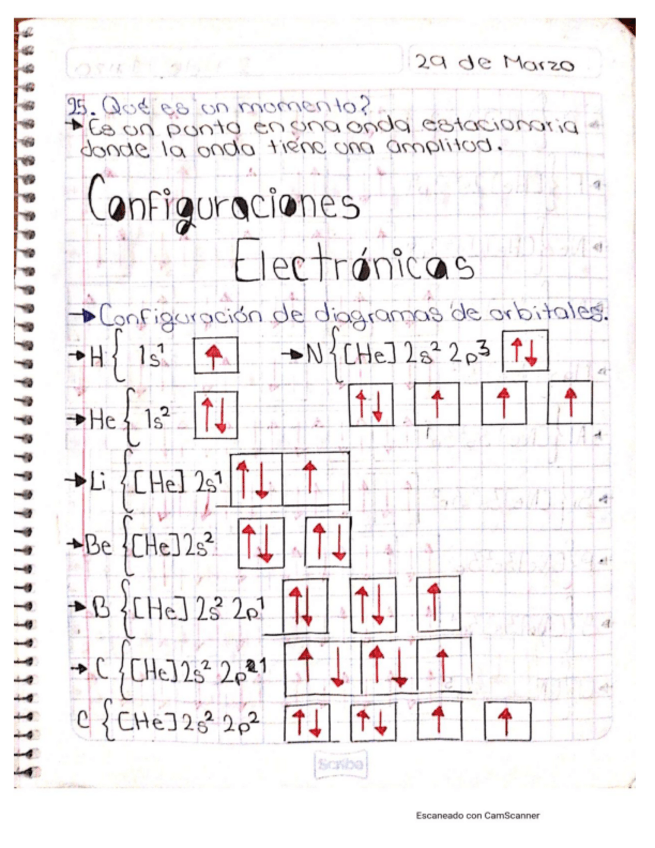 29 de Marzo
25. Qué es un momento?
→ Es un punto en una onda estacionaria
donde la onda tiene una amplitud.
Configuraciones
Electrónicas
→ Configuración de diagramas de orbitales.
→ H { 1s¹ ↑ → N { [He] 2s² 2p³ ↑↓
→ He { 1s² ↑↓ ↑↓ ↑ ↑ ↑
→ Li { [He] 2s¹ ↑↓ ↑
→ Be { [He] 2s² ↑↓ ↑↓
→ B { [He] 2s² 2p¹ ↑↓ ↑↓ ↑
→ C { [He] 2s² 2p²¹ ↑↓ ↑↓ ↑
C { [He] 2s² 2p² ↑↓ ↑↓ ↑ ↑
Scribe
Escaneado con CamScanner